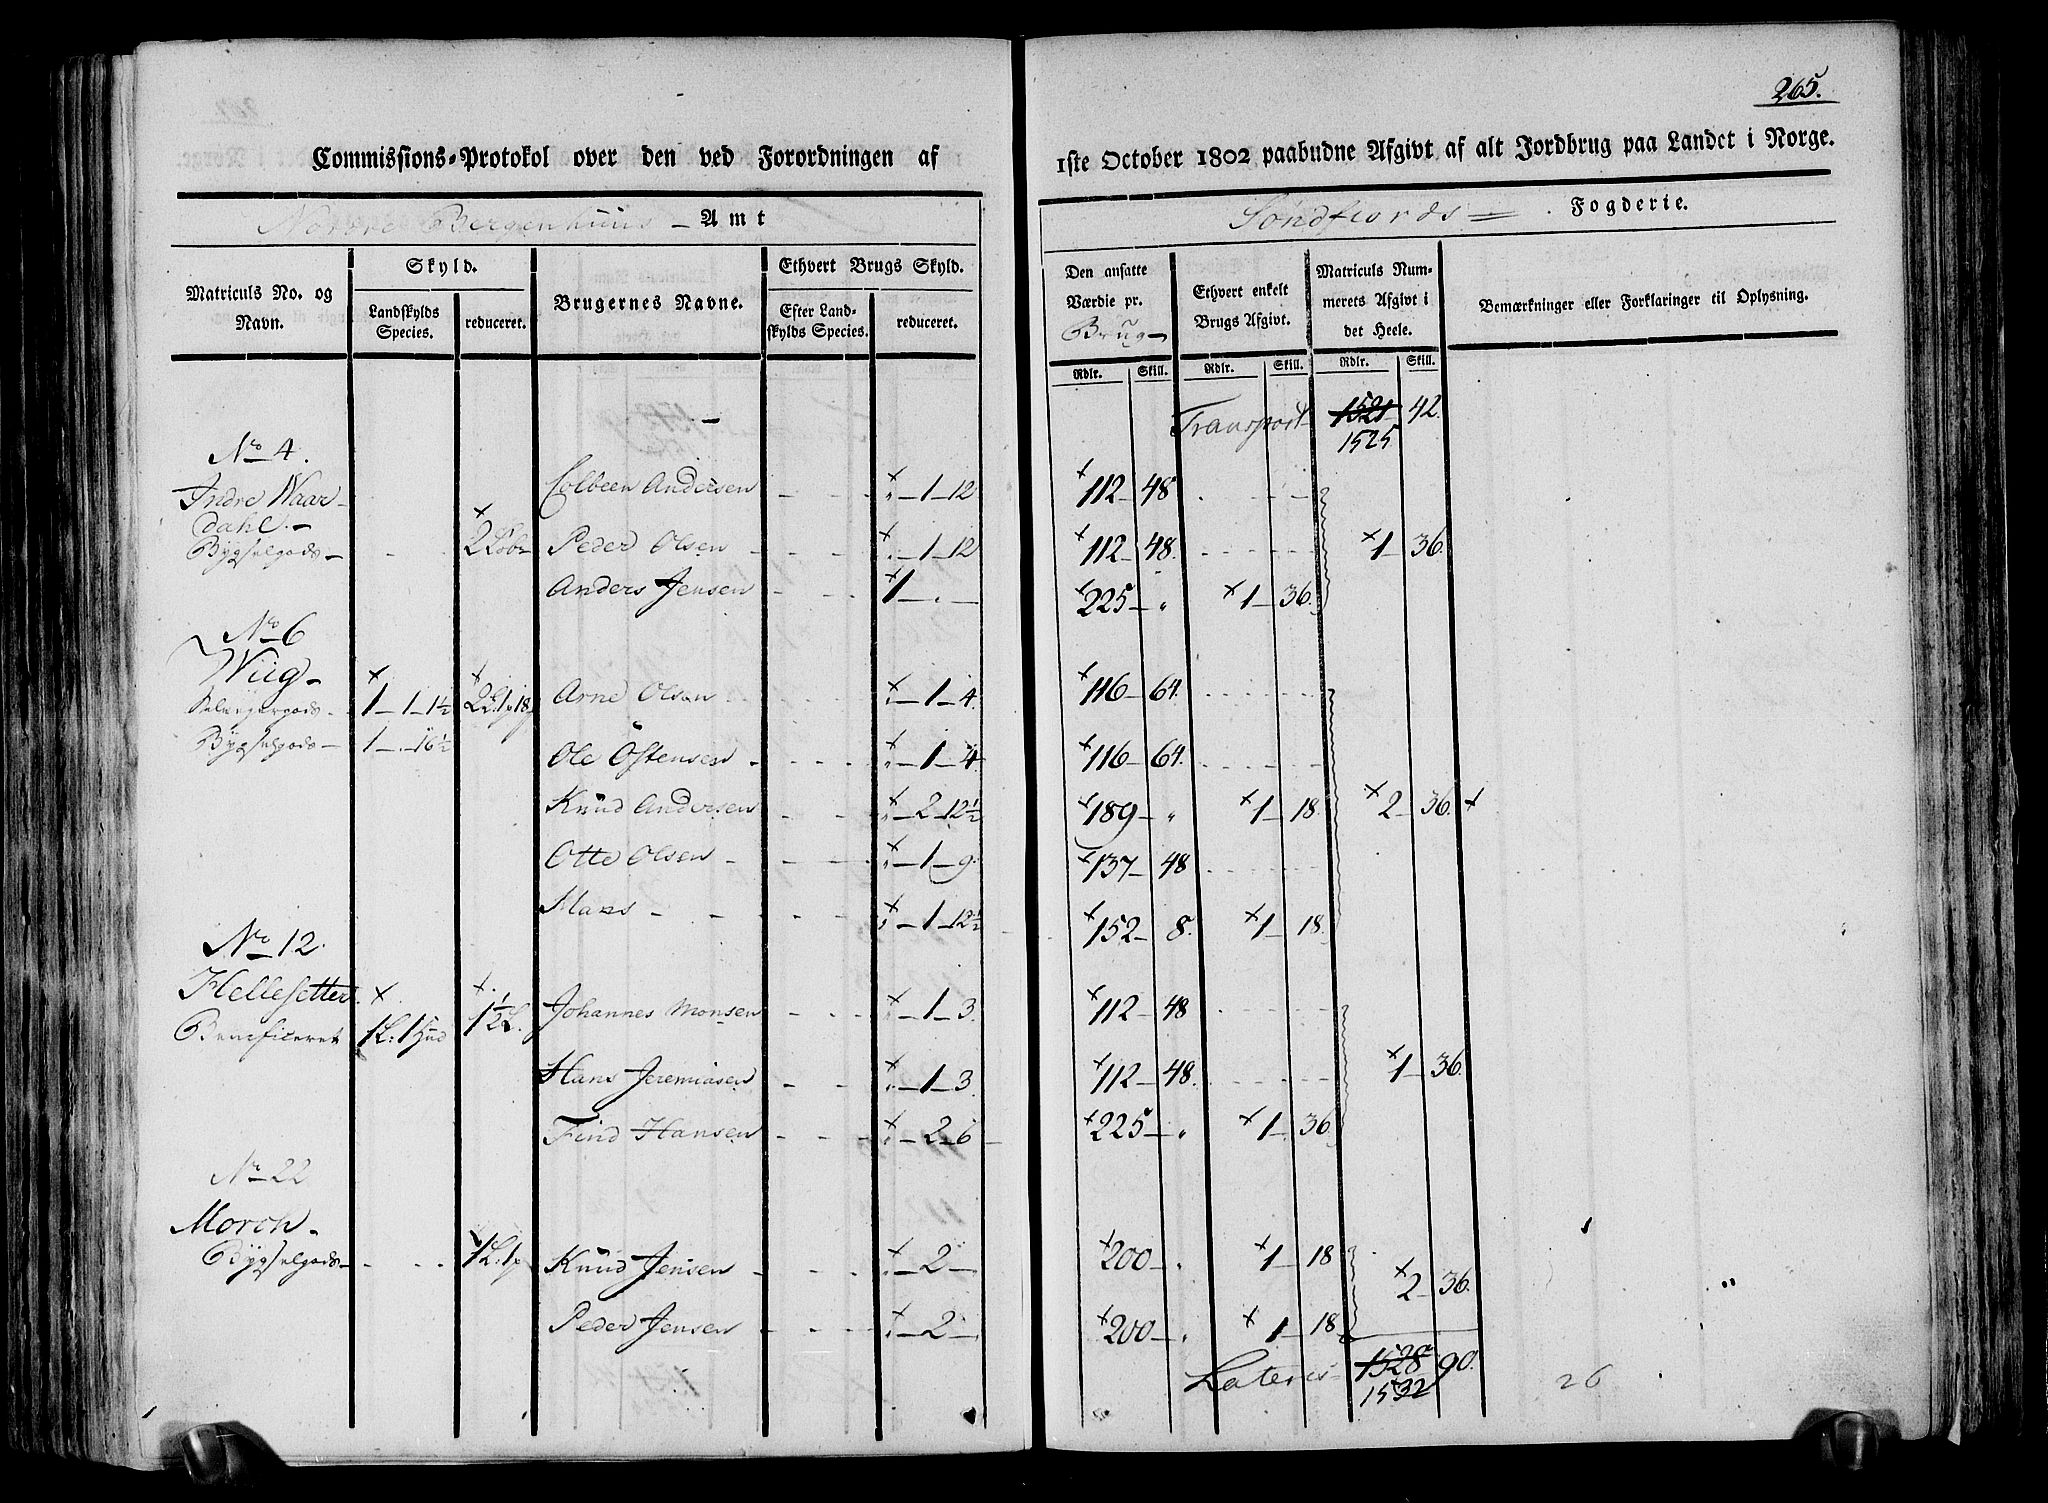 265.
Commissions-Protokol over den ved Forordningen af 1ste October 1802 paabudne Afgivt af alt Jordbrug paa Landet i Norge.
Nordre Bergenhuus Amt
Søndfiords Fogderie.
Matriculs No. og Navn.
Skyld.
Landskylds Species.
reduceret.
Brugernes Navne.
Ethvert Brugs Skyld.
Efter Landskylds Species.
reduceret.
Den ansatte Værdie pr. Brug
Ethvert enkelt Brugs Afgivt.
Matriculs Nummerets Afgivt i det Heele.
Bemærkninger eller Forklaringer til Oplysning.
Rdlr. Skill. Rdlr. Skill. Rdlr. Skill.
Transport 1521 42.
1525
No 4.
Indre Waar-
dahl.
Colbeen Andersen " 1 12 112 48
Bygselgods 2 Løbr Peder Olsen " 1 12 112 48. 1 36.
Anders Jensen 1 " 225 " 1 36.
No 6
Wiig
1 1 1½ 2L. 1p 18 Arne Olsen " 1 4 116 64.
Bygselgods 1 " 16½
Ole Östensen " 1 4 116 64.
Knud Andersen " 2 12½ 189 " 1 18. 2 36.
Otte Olsen " 1 9. 137 48
Mans " 1 12½ 152 8. 1 18.
No 12.
Hellesetter
Beneficeret 1L. 1 Hud 1½ L. Johannes Monsen " 1 3. 112 48
Hans Jeremiasen " 1 3. 112 48. 1 36.
Find Hansen " 2 6 225 " 1 36
No 22
Morch
Bygselgods 1L. 1p Knud Jensen " 2 200 " 1 18 2 36.
Peder Jensen " 2 200 " 1 18
Lateris 1528 90.
1532
26